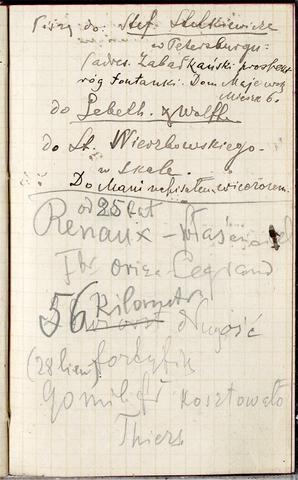 Piszę do: Stef. Stulkiewicza
w Petersburgu:
(adres. Zabałkański prospekt
róg Fontanki. Dom Majewsk
Mieszk 6.
do Gebeth. & Wolff.
do St. Wierzbowskiego.
w Skale.
Do Mani napisałem wieczorem.
od 25 lat
Renaux – właściciel
Fbr oriza Legrand
Kilometry
56 długość
(28 lieu) fortyfik
kosztowało
Thiers